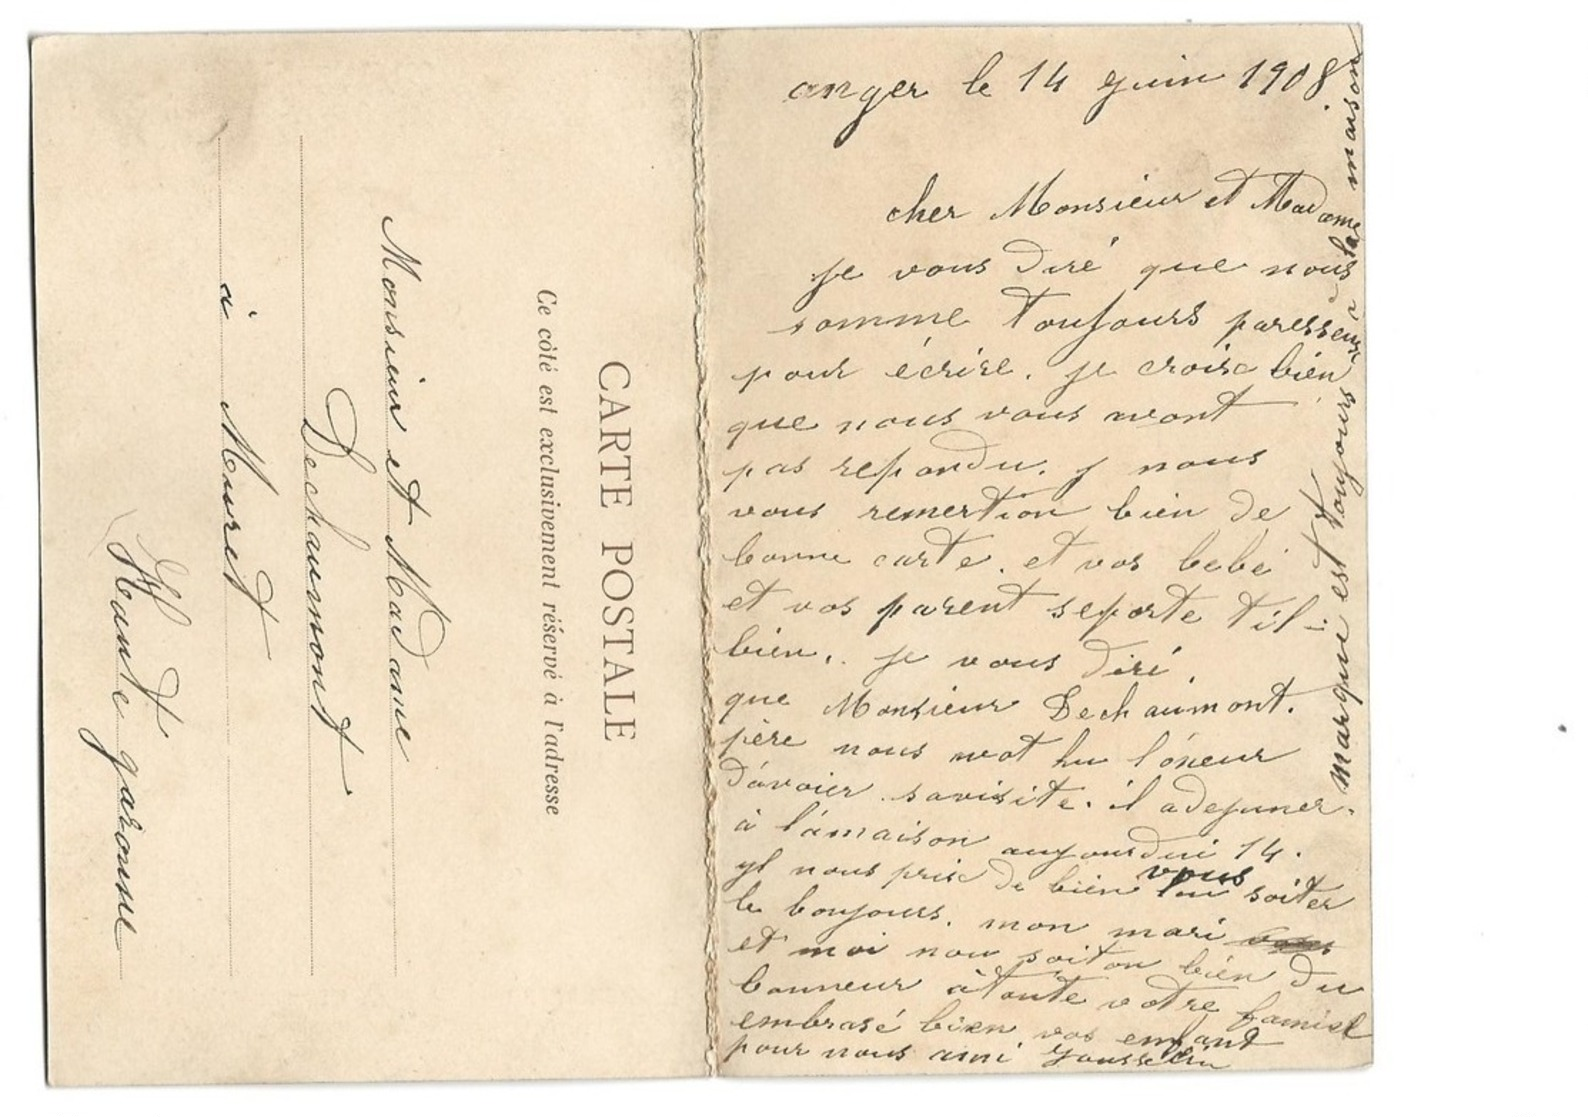 CARTE POSTALE
Ce côté est exclusivement réservé à l'adresse
Monsieur et Madame
Dechaumont
à Muret
Haute garonne
anger le 14 Juin 1908
cher Monsieur et Madame
je vous diré que nous
somme toujours paresseuse
pour écrire. je croise bien
que nous vous avont
pas repondu. y nous
vous remertion bien de
bonne carte. et vos bebé
et vos parent seporte til-
bien.. je vous diré
que Monsieur Dechaumont.
père nous not hu lóneur
dávoier savisite. il adejuner.
à lámaison aujourdui 14.
yl nous prie de bien vous soiter
le boujours. mon mari
et moi nou soiton bien du
bonneur àtoute votre famiel
embrasé bien vos enfant
pour nous ami
marque est toujours à la maison